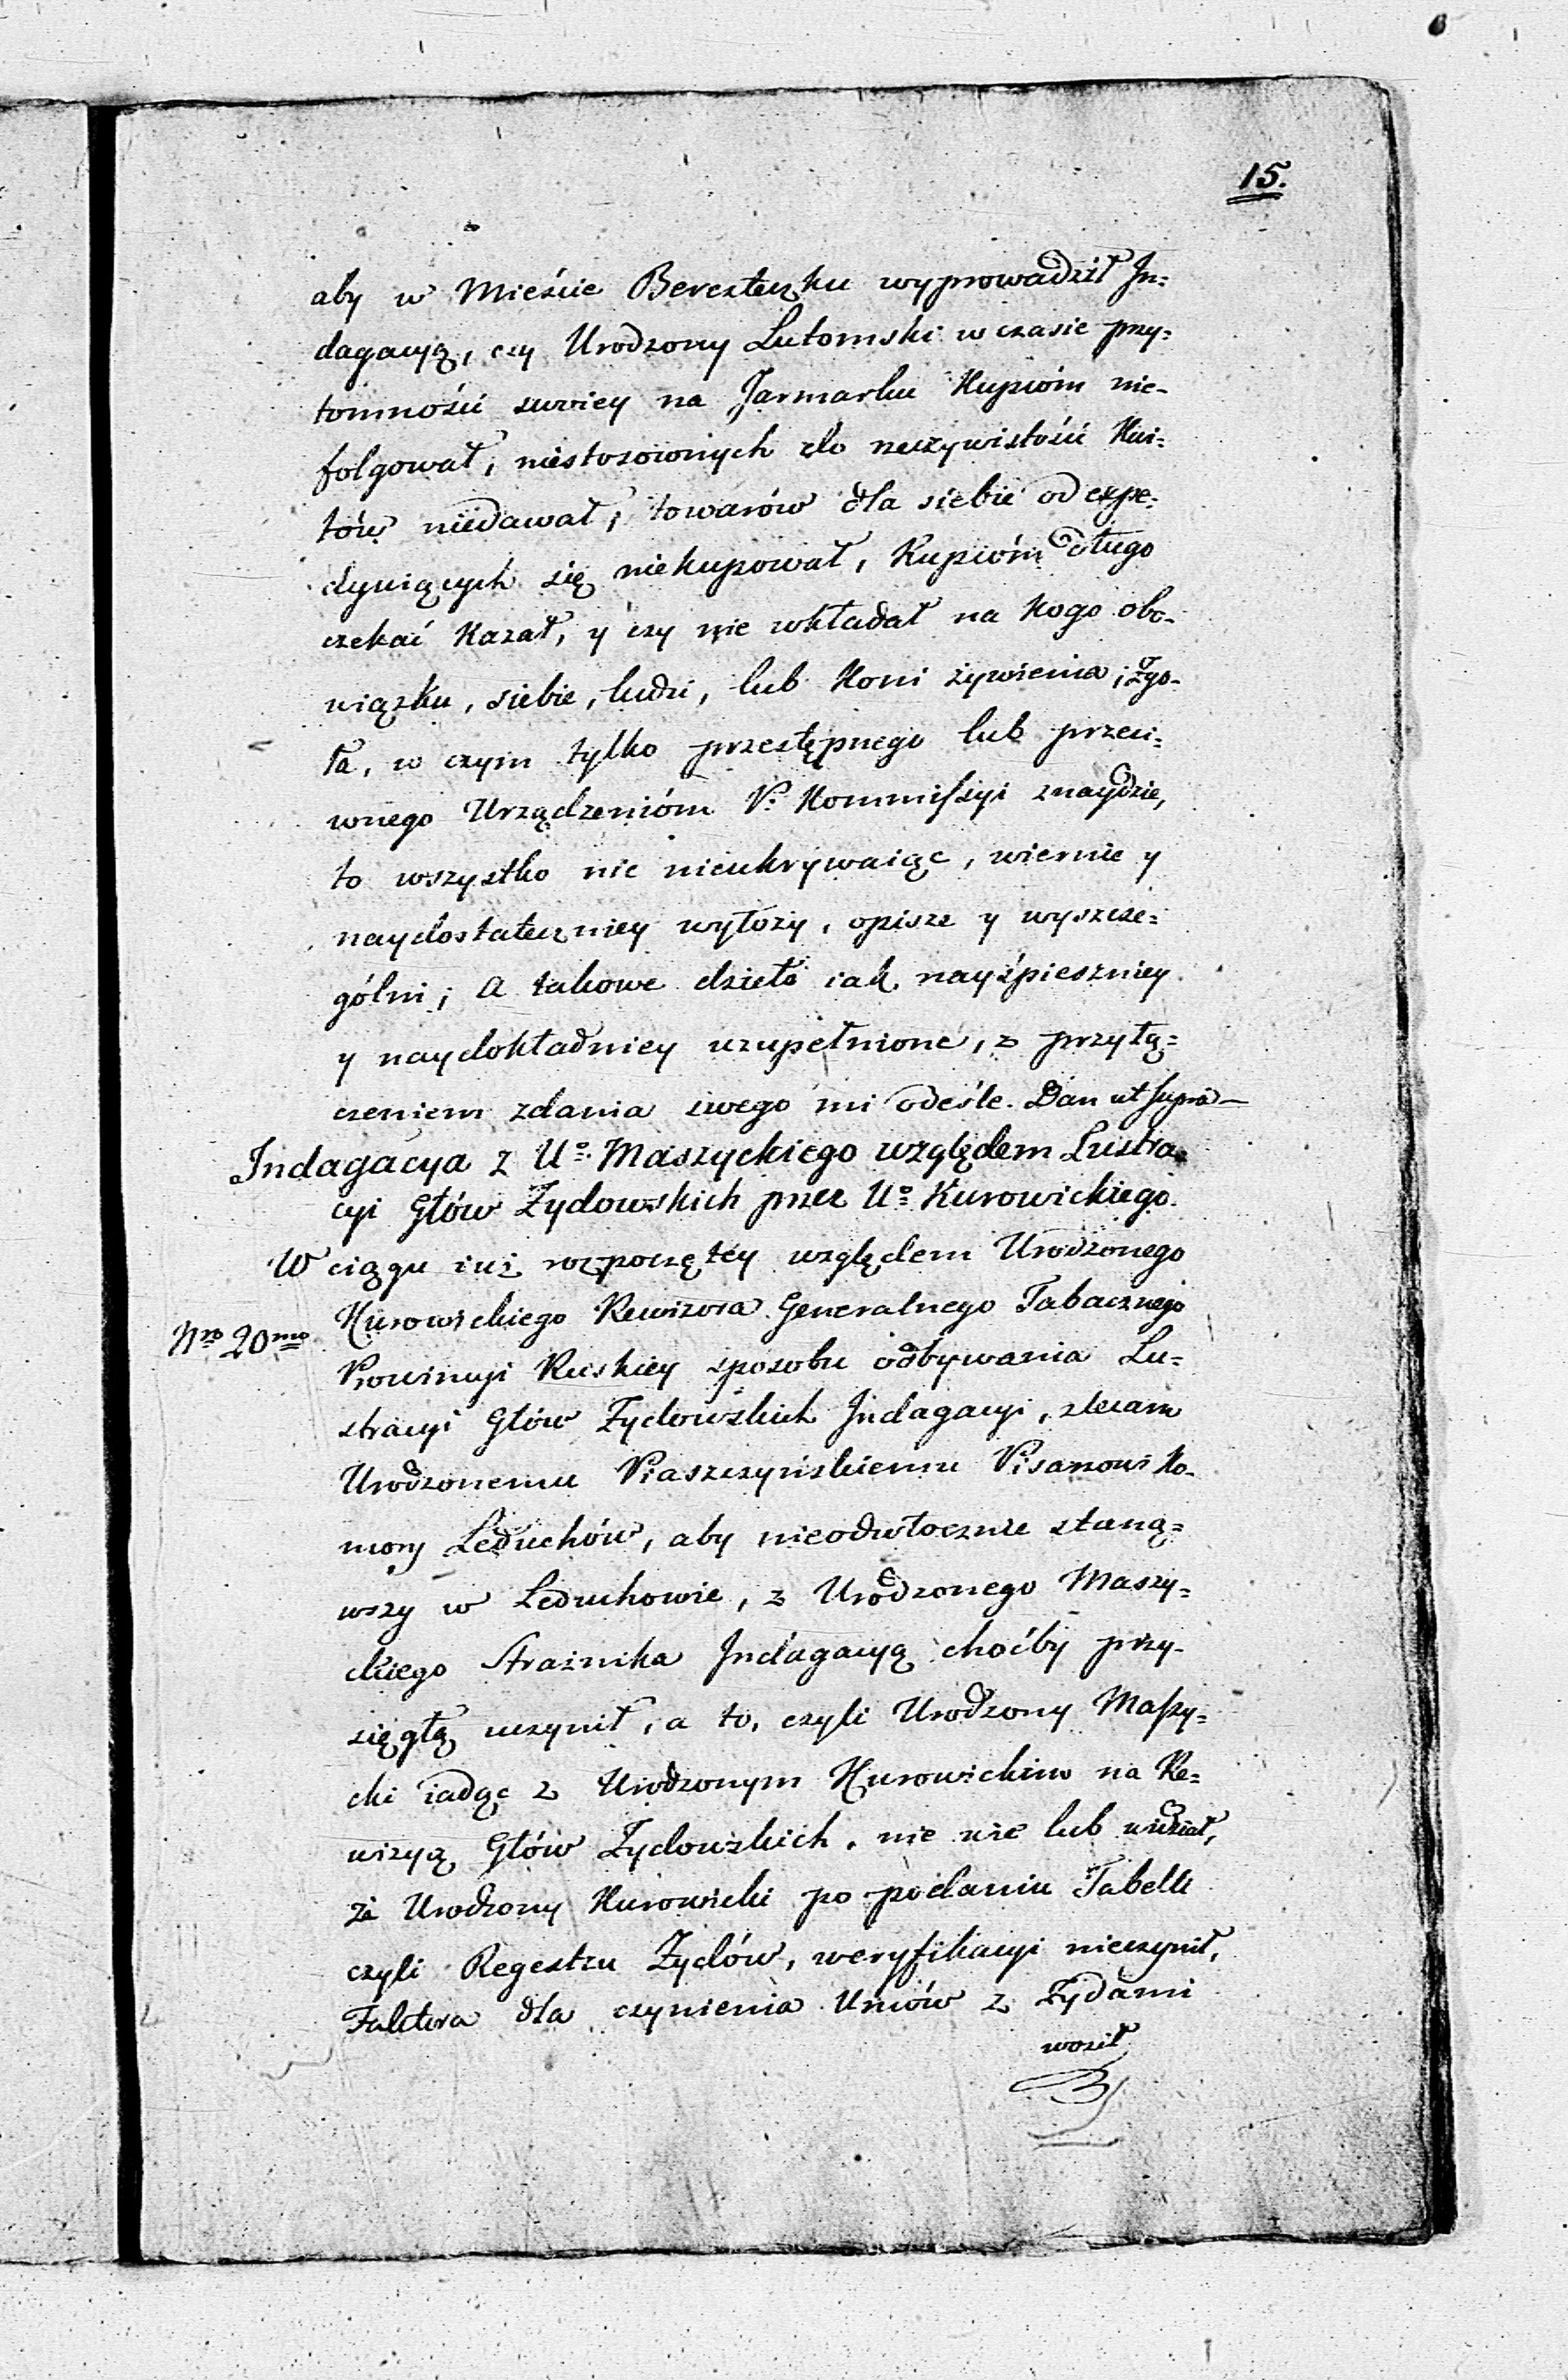 15.
aby w Mieście Beresteczku wyprowadził In=
dagacyą, czy Urodzony Lutomski w czasie przy=
tomności swoiey na Jarmarku Kupcóm nie-
folgował, niestosownych do rzeczywistości Kwi=
tów niedawał, towarów dla siebie od expe=
dyuiących się niekupował, Kupcóm długo
czekać kazał, y czy nie wkładał na kogo obo-
wiązku, siebie, ludzi, lub koni żywienia; Zgo-
ła, w czym tylko przestępnego lub przeci=
wnego Urządzenióm P. Kommissyi znaydzie,
to wszystko nic nieukrywaiąc, wiernie y
naydostateczniey wyłoży, opisze y wyszcze=
gólni; a takowe dzieło iak nayśpieszniey
y naydokładniey uzupełnione, z przyłą=
czeniem zdania swego mi odeśle. Dan ut supra—
Indagacya z Uo. Maszyckiego względem Lustra=
cyi Głów Zydowskich przez Uo. Kurowickiego.
W ciągu iuż rozpoczętéy względem Urodzonego
Kurowickiego Rewizora Generalnego Tabacznego
Nro 20mo
Prowincyi Ruskiey sposobu odbywania Lu=
stracyi Głów Zydowskich Indagacyi, zlecam
Urodzonemu Piaszczyńskiemu Pisarzowi Ko-
mory Leduchów, aby nieodwłocznie staną=
wszy w Leduchowie, z Urodzonego Maszy=
ckiego Strażnika Indagacyą choćby przy-
sięgłą uczynił, a to, czyli Urodzony Maszy=
cki iadąc z Urodzonym Kurowickim na Re=
wizyą Głów Zydowskich, nie wie lub widział,
że Urodzony Kurowicki po podaniu Tabelli
czyli Regestru Zydów, weryfikacyi nieczynił,
Faktora dla czynienia Umów z Zydami
woził